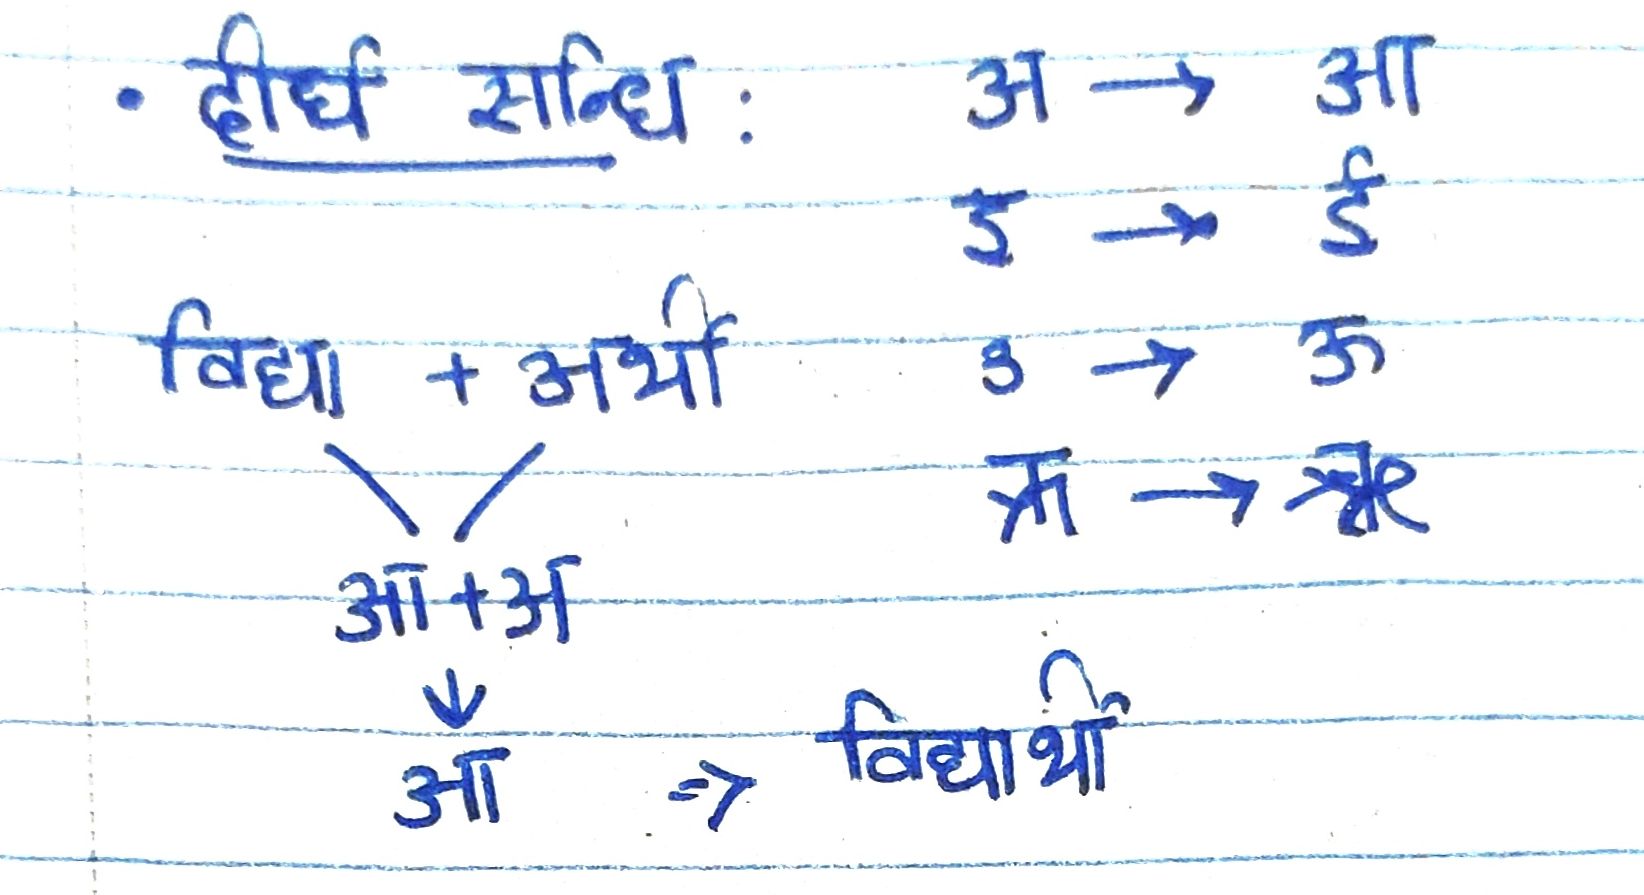 • दीर्घ सन्धि : अ → आ
इ → ई
विद्या + अर्थी उ → ऊ
ऋ → ॠ
आ + अ
↓
आ ⇒ विद्यार्थी